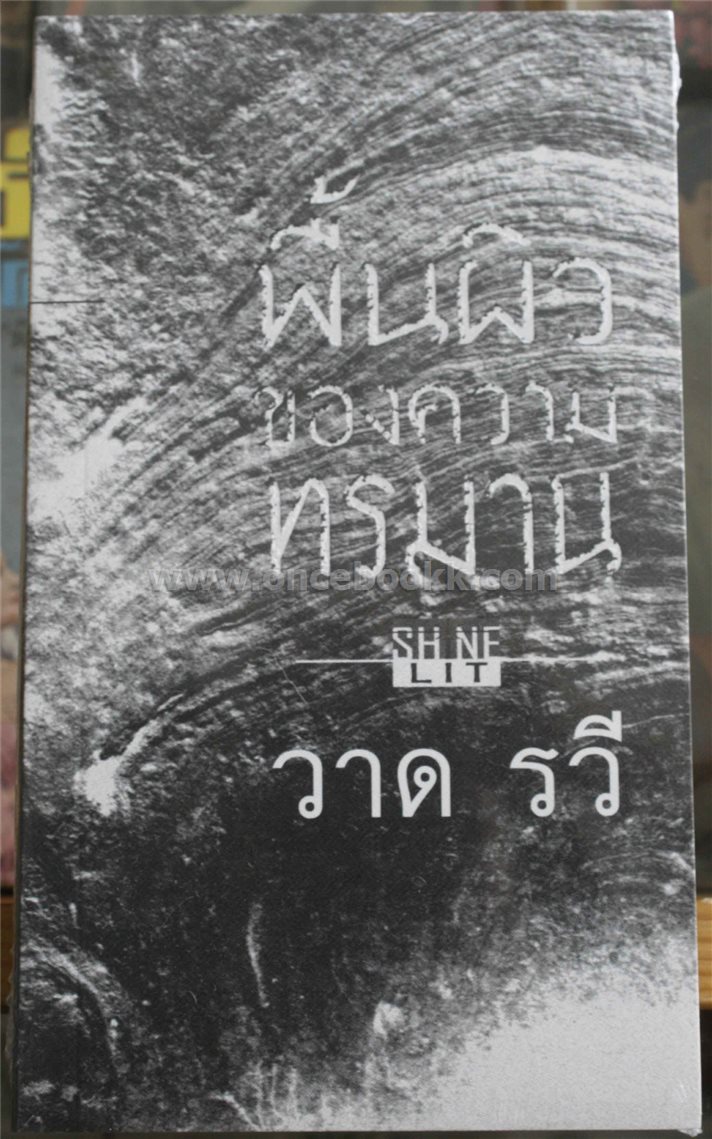 พื้นผิว
ของความ
ทรมาน
www.oncebookk.com
SHINE
LIT
วาด รวี